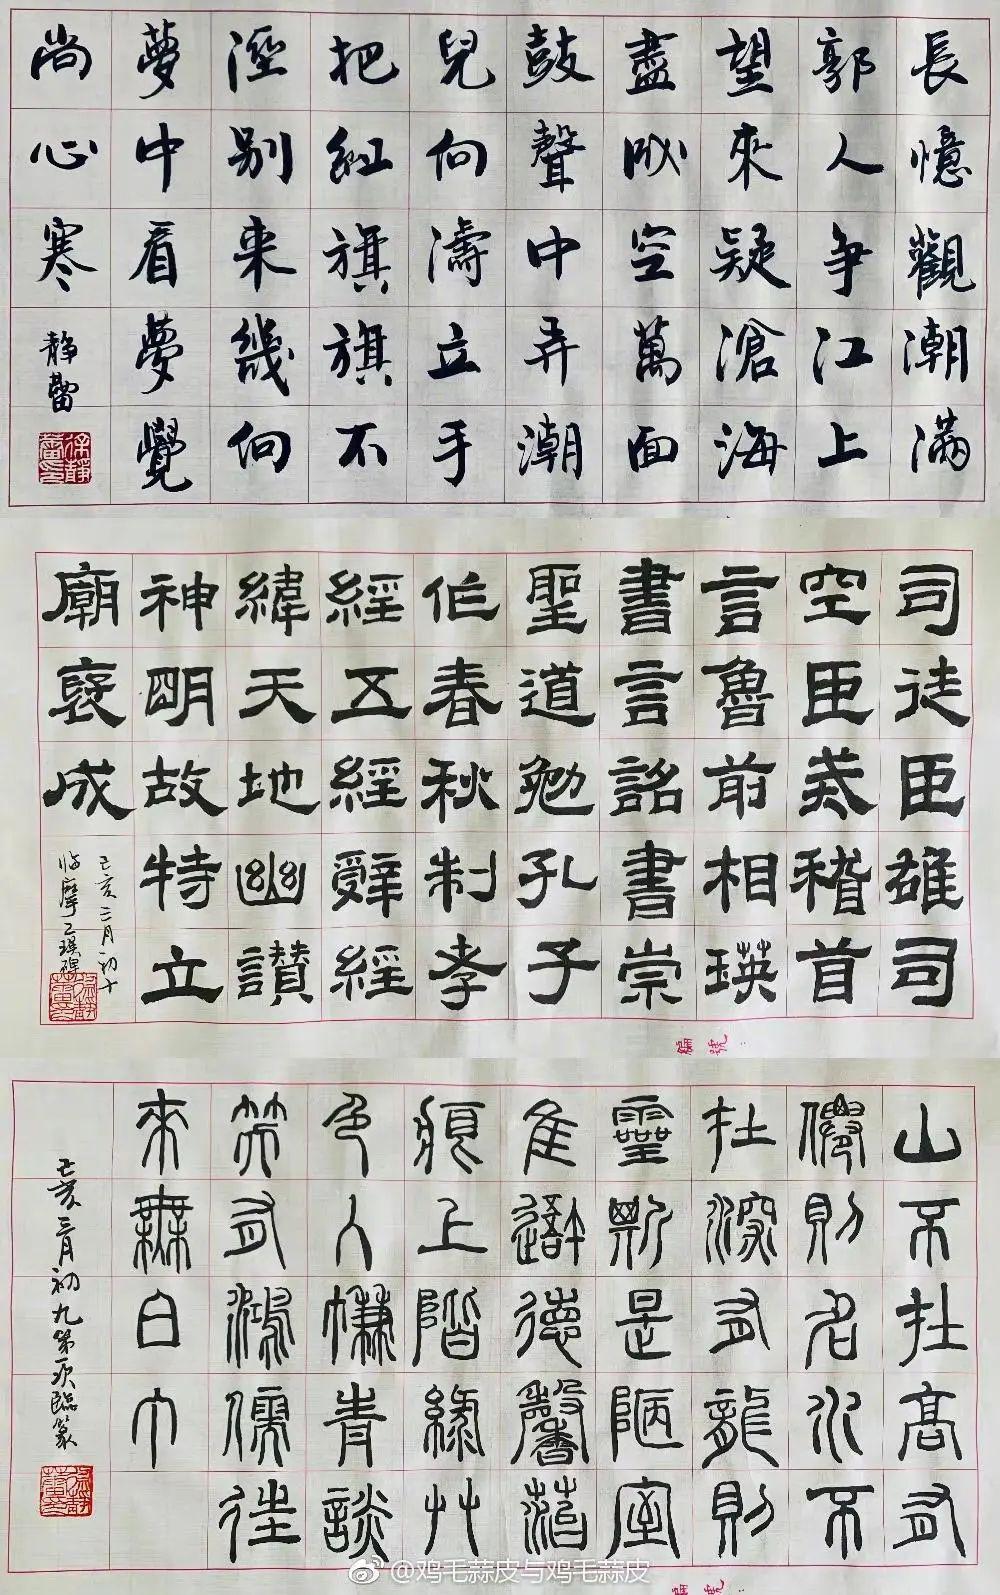 長憶觀潮滿
郭人爭江上
望來疑滄海
盡成空萬面
鼓聲中弄潮
兒向濤立手
把紅旗旗不
溼別来幾向
夢中看夢覺
尚心寒
靜蕾
司徒臣雄司
空臣戒稽首
言魯前相瑛
書言詔書崇
聖道勉孔子
作春秋制孝
經五經辭經
緯天地幽讚
神明故特立
廟褒成
己亥三月初十
临摩乙瑛碑
山不在高有
僊則名水不
在深有龍則
靈斯是陋室
隹吾德馨菭
痕上階綠艸
色入簾青談
笑有鴻儒往
來無白丁
己亥三月初九第一次臨篆
@鸡毛蒜皮与鸡毛蒜皮